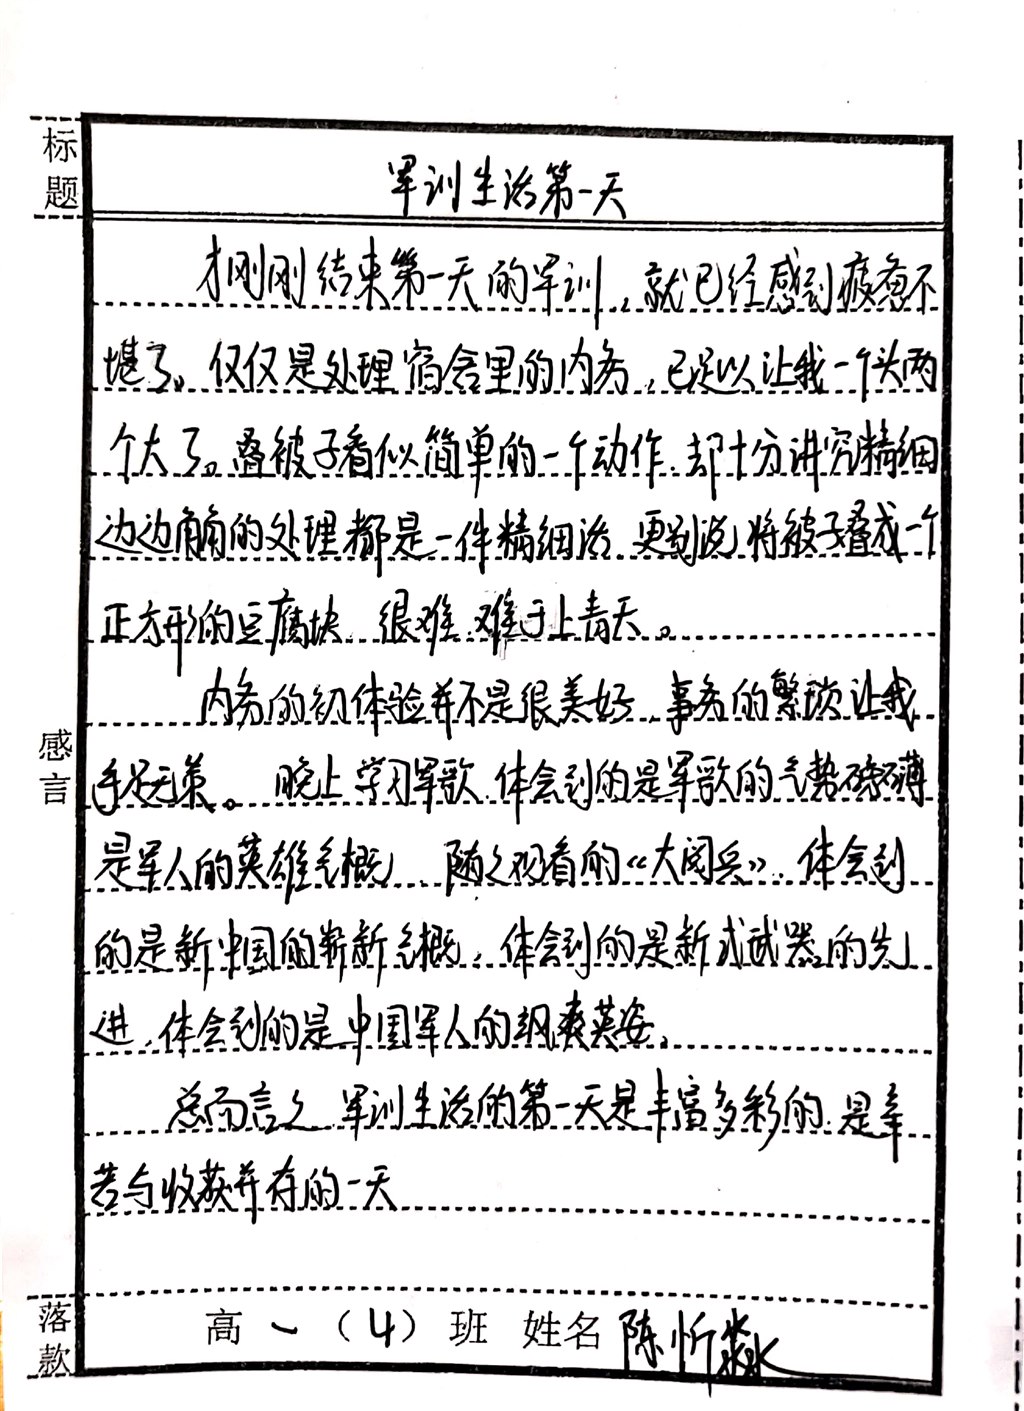 标题
军训生活第一天
才刚刚结束第一天的军训，就已经感到疲惫不
堪了。仅仅是处理宿舍里的内务，已足以让我一个头两
个大了。叠被子看似简单的一个动作，却十分讲究精细
边边角角的处理都是一件精细活，更别说将被子叠成一个
正方形的豆腐块，很难，难于上青天。
内务的初体验并不是很美好，事务的繁琐让我
感言
手足无策。晚上学习军歌，体会到的是军歌的气势磅礴
是军人的英雄气概，随之观看的《大阅兵》，体会到
的是新中国的崭新气概，体会到的是新式武器的先
进，体会到的是中国军人的飒爽英姿。
总而言之，军训生活的第一天是丰富多彩的，是辛
苦与收获并存的一天
落款
高一（4）班 姓名 陈忻淼